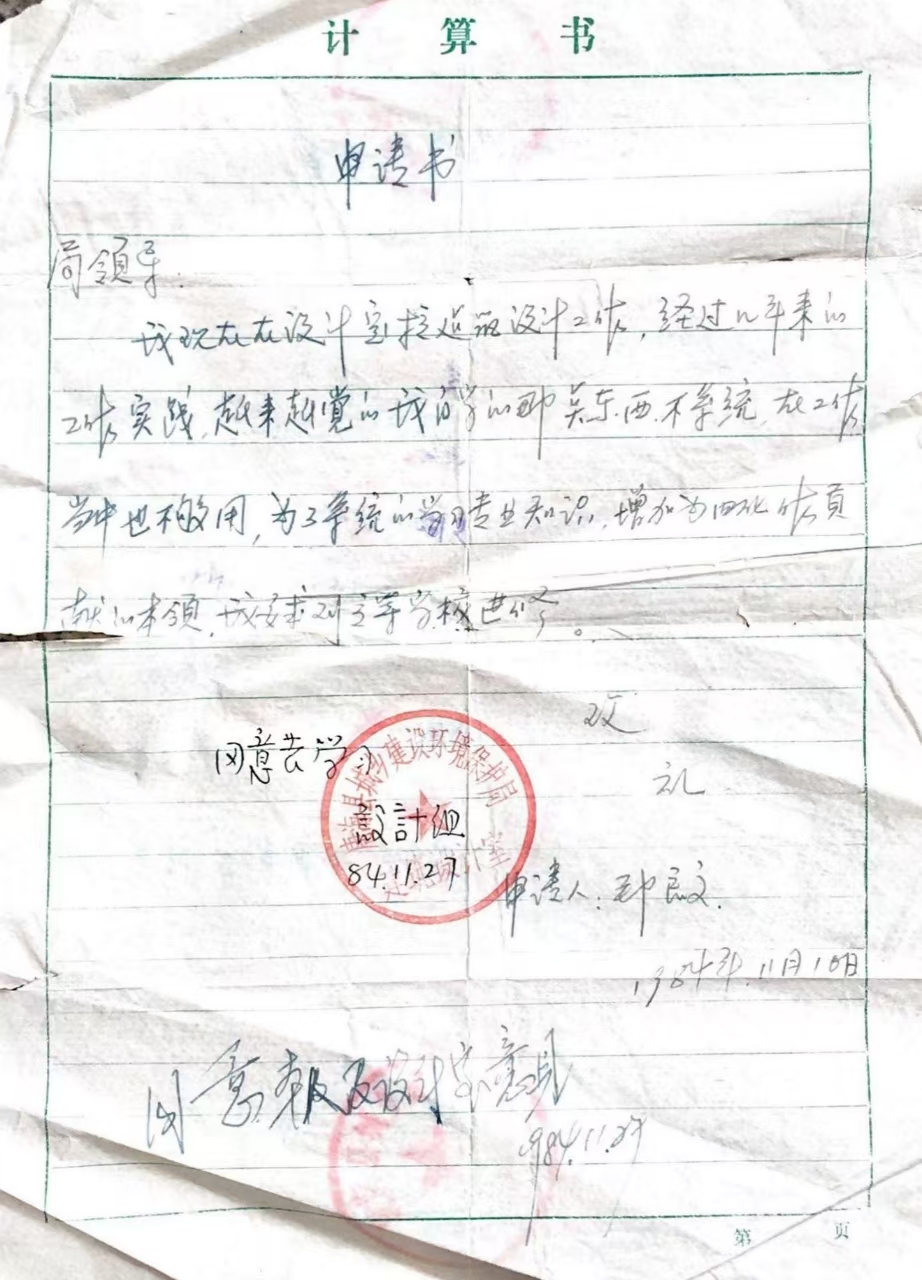 计算书
申请书
局领导.
我现在在设计室搞建筑设计工作,经过几年来的
工作实践,越来越觉的我自学的那点东西不系统,在工作
当中也不够用,为了系统的学习专业知识,增加为四化作贡
献的本领,我要求到高等学校进修。
致
礼
同意去学习
設計组
84.11.27
县城乡建设环境保护局
设计室
申请人:郑良文.
1984年.11月10日
同意报及设计室意见
984.11.27
第 页